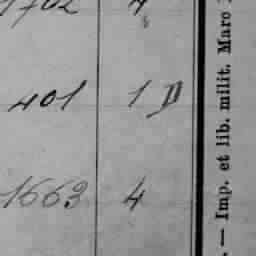 1702 4
401 1 D
1663 4
. — Imp. et lib. milit. Maro